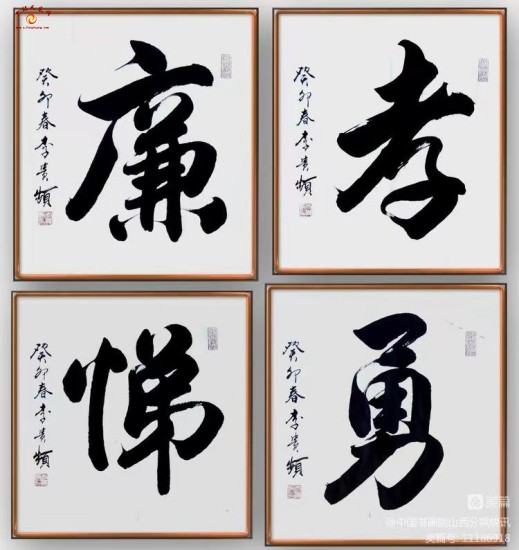 廉
癸卯春李贵
孝
癸卯春李贵
悌
癸卯春李贵
勇
癸卯春李贵
美篇
@中国书画院山西分院快讯
美篇号:11166318